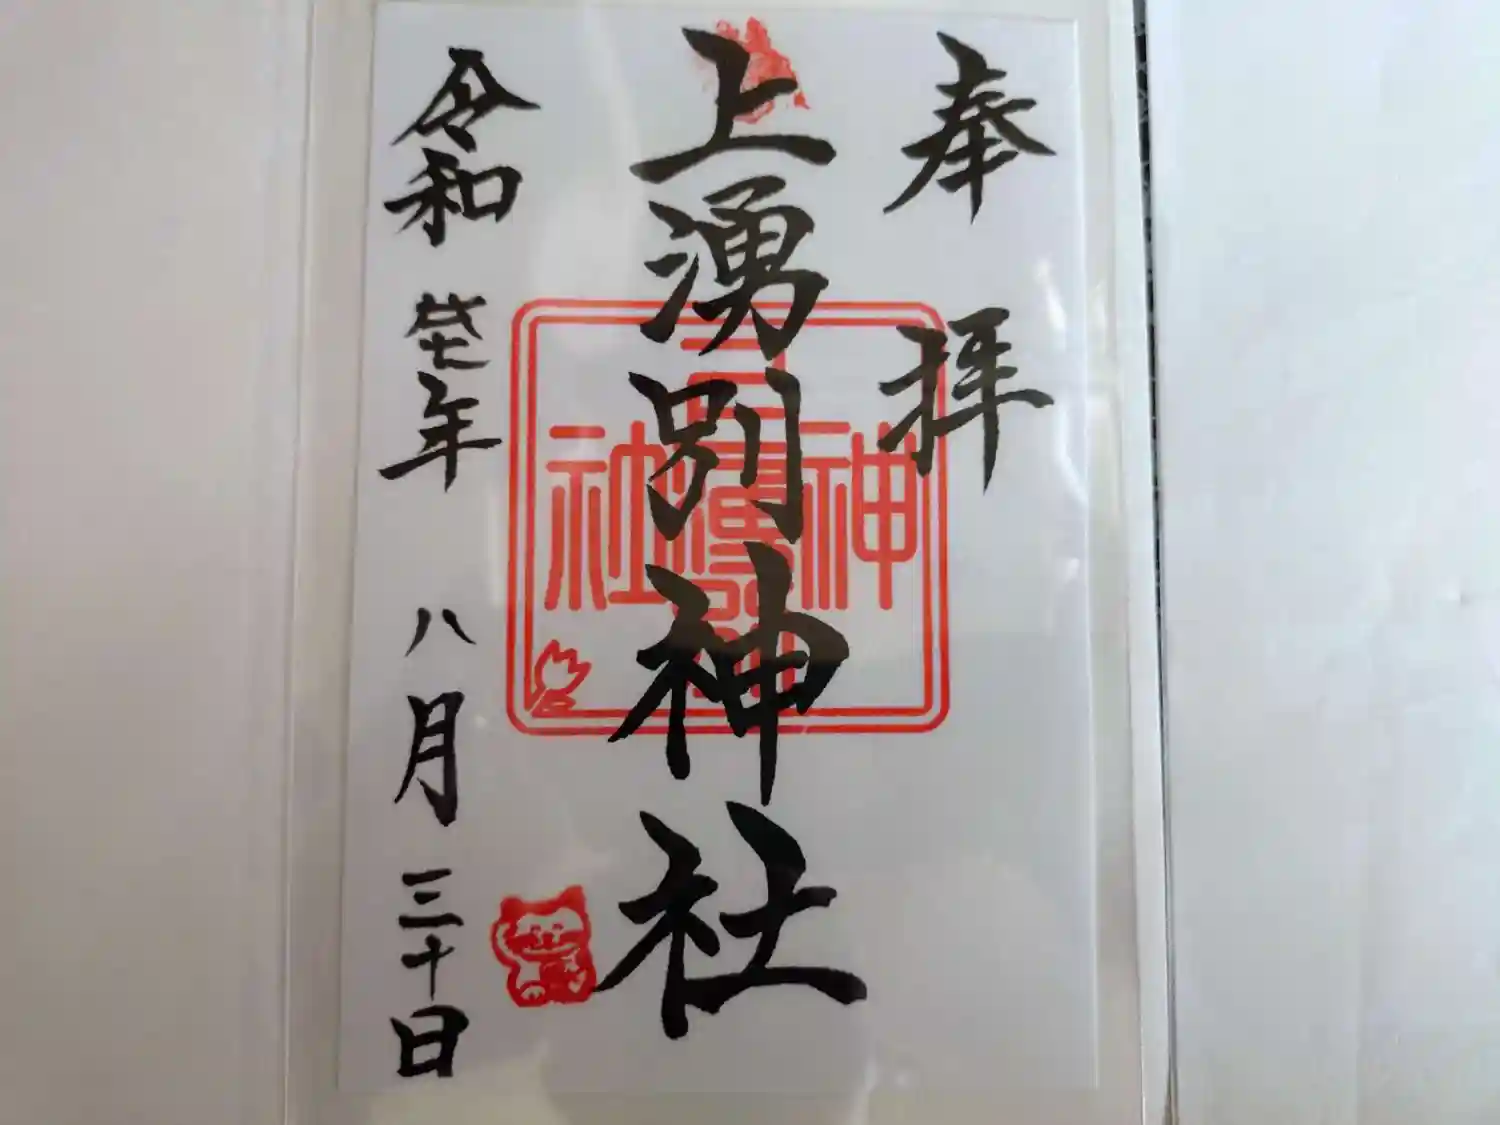 奉拝
上湧別神社
令和 年 八月三十日
神社